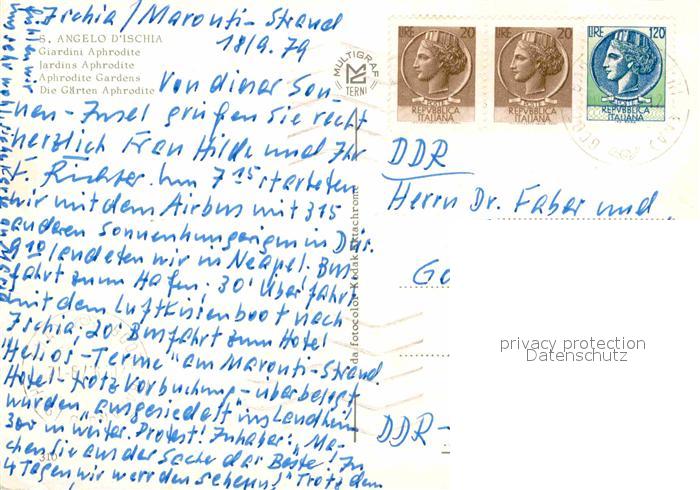 Ischia/Maronti-Strand
18/9.79
S. ANGELO D'ISCHIA
Giardini Aphrodite
Jardins Aphrodite
Aphrodite Gardens
Die Gärten Aphrodite
Von dieser Son-
nen-Insel grüßen Sie recht
herzlich Frau Hilde und Ihr
F. Richter. Um 7 15 starteten
wir mit dem Airbus mit 315
anderen Sonnenhungrigen in Düs.
9 10 landeten wir in Neapel. Bus-
fahrt zum Hafen; 30' Überfahrt
mit dem Luftkissenboot nach
Ischia; 20' Busfahrt zum Hotel
"Helios-Terme" am Maronti-Strand
Hotel-trotz Vorbuchung-überbelegt
wurden "ausgesiedelt" ins Landhein
300 m weiter. Protest! Inhaber: "Ma-
chen Sie aus der Sache das Beste! In
4 Tagen wir werrden sehenn!" Trotz dem
fühlen wir
uns sehr wohl
310
da fotocolor Kodak Ektachrome
MULTIGRAF
TERNI
LIRE 20
REPVBBLICA
ITALIANA
LIRE 20
REPVBBLICA
ITALIANA
LIRE 120
REPVBBLICA
ITALIANA
DDR
Herrn Dr. Faber und
Go
DDR-
privacy protection
Datenschutz